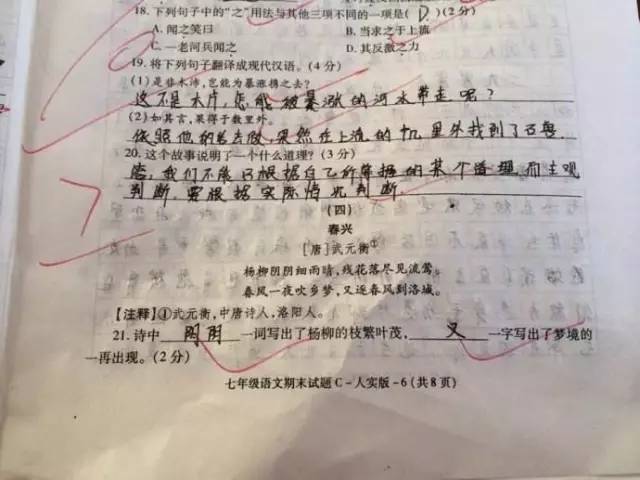 18. 下列句子中的“之”用法与其他三项不同的一项是( D )(2分)
A. 闻之笑曰 B. 当求之于上流
C. 一老河兵闻之 D. 其反激之力
19. 将下列句子翻译成现代汉语。(4分)
(1) 是非木沛,岂能为暴涨携之去?
这不是木片,怎能被暴涨的河水带走呢?
(2) 如其言,果得于数里外。
依照他的去做,果然在上流的几里外找到了石兽.
20. 这个故事说明了一个什么道理?(3分)
答:我们不能只根据自己所掌握的某个道理而主观
判断.要根据实际情况判断
(四)
春兴
[唐]武元衡①
杨柳阴阴细雨晴,残花落尽见流莺。
春风一夜吹乡梦,又逐春风到洛城。
【注释】①武元衡,中唐诗人,洛阳人。
21. 诗中 阴阴 一词写出了杨柳的枝繁叶茂, 又 一字写出了梦境的
一再出现。(2分)
七年级语文期末试题C-人实版-6(共8页)